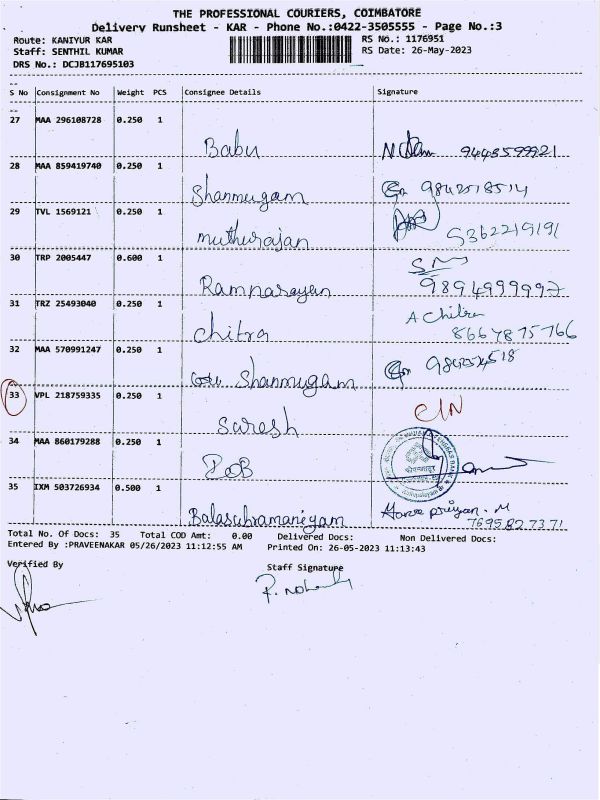 THE PROFESSIONAL COURIERS, COIMBATORE
Delivery Runsheet - KAR - Phone No.:0422-3505555 - Page No.:3
Route: KANIYUR KAR RS No.: 1176951
Staff: SENTHIL KUMAR RS Date: 26-May-2023
DRS No.: DCJB117695103
S No Consignment No Weight PCS Consignee Details Signature
27 MAA 296108728 0.250 1
Babu 9448599921
28 MAA 859419740 0.250 1
Shanmugam 9842518514
29 TVL 1569121 0.250 1
muthurajan 5362219191
30 TRP 2005447 0.600 1 SM
Ramnarayan 9894999997
31 TRZ 25493040 0.250 1 A Chitra
chitra 8667875766
32 MAA 570991247 0.250 1
Shanmugam
33 VPL 218759335 0.250 1 CIN
Suresh
34 MAA 860179288 0.250 1
IOB
35 IXM 503726934 0.500 1
Balasubramaniyam 7695827371
Total No. Of Docs: 35 Total COD Amt: 0.00 Delivered Docs: Non Delivered Docs:
Entered By :PRAVEENAKAR 05/26/2023 11:12:55 AM Printed On: 26-05-2023 11:13:43
Verified By Staff Signature